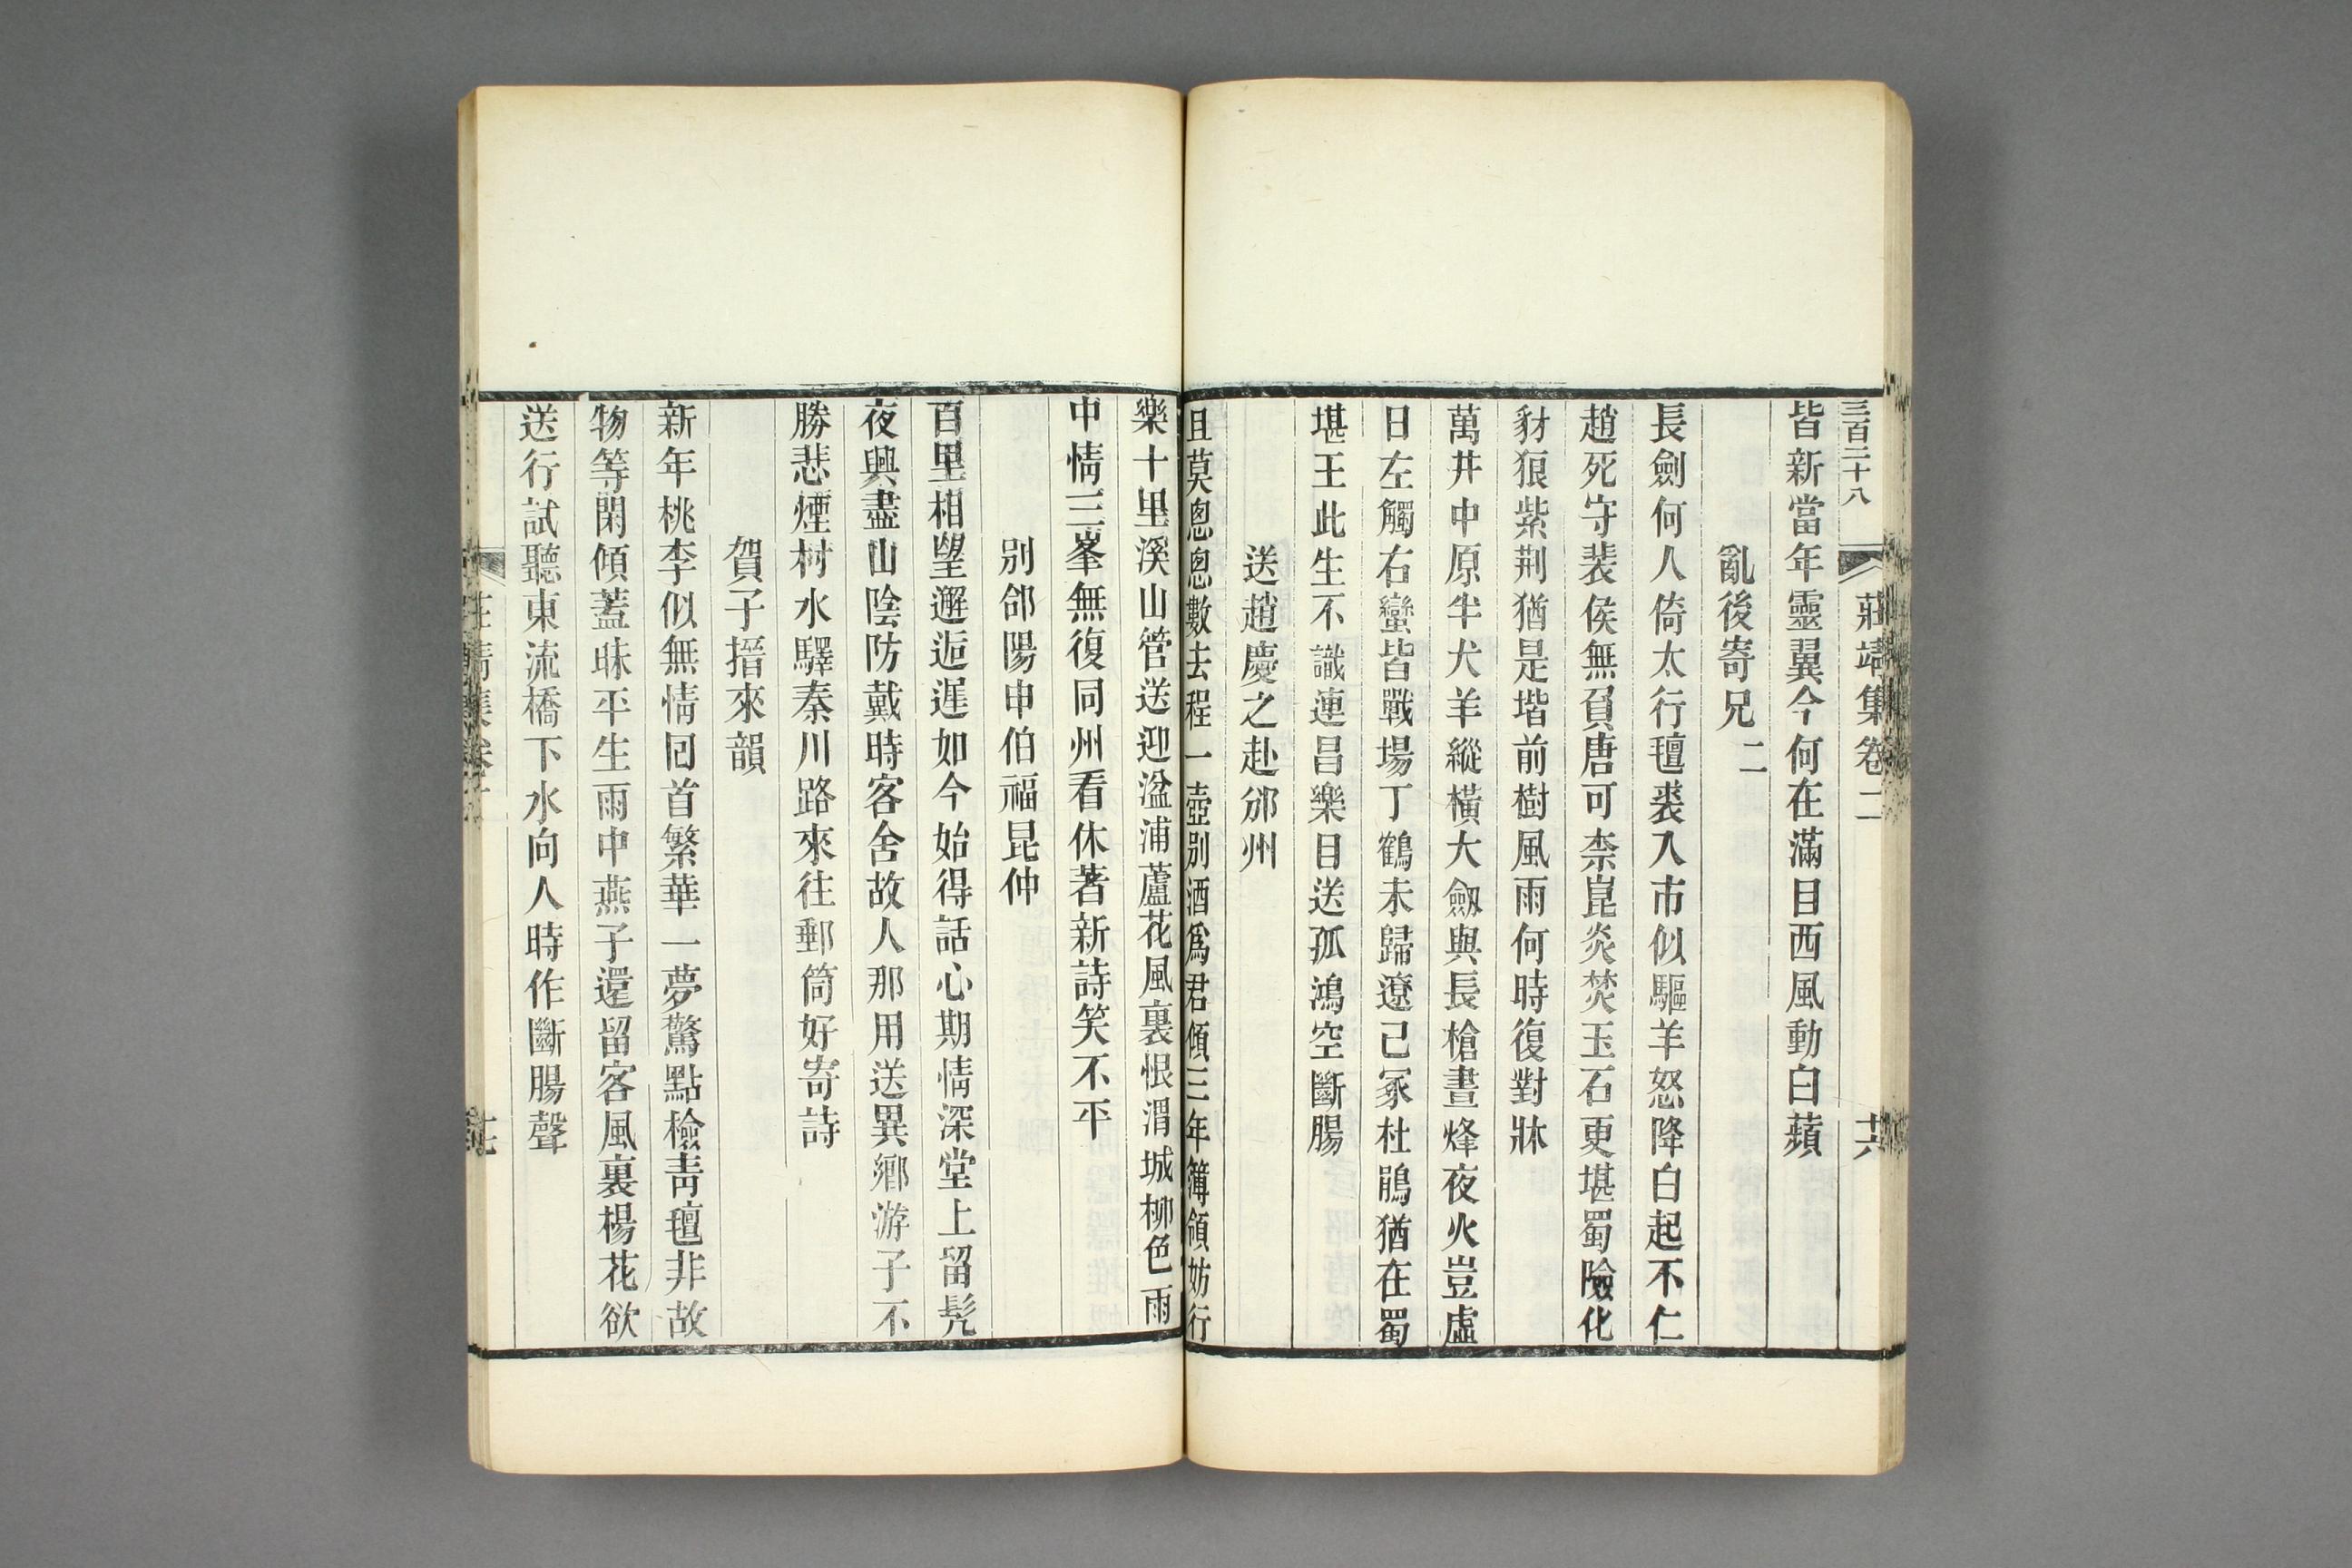 三百二十八
莊靖集卷二
十六
皆新當年靈翼今何在滿目西風動白蘋
亂後寄兄二
長劍何人倚太行氊裘入市似驅羊怒降白起不仁
趙死守裴侯無負唐可柰崑炎焚玉石更堪蜀險化
豺狼紫荆猶是堦前樹風雨何時復對牀
萬井中原半犬羊縱橫大劔與長槍晝烽夜火豈虛
日左觸右蠻皆戰場丁鶴未歸遼已冢杜鵑猶在蜀
堪王此生不識連昌樂目送孤鴻空斷腸
送趙慶之赴邠州
且莫悤悤數去程一壺别酒爲君傾三年簿領妨行
樂十里溪山管送迎湓浦蘆花風裏恨渭城柳色雨
中情三峯無復同州看休著新詩笑不平
别郃陽申伯福昆仲
百里相望邂逅遲如今始得話心期情深堂上留髡
夜興盡山陰防戴時客舍故人那用送異鄉游子不
勝悲煙村水驛秦川路來往郵筒好寄詩
賀子搢來韻
新年桃李似無情回首繁華一夢驚點檢靑氊非故
物等閑傾蓋昧平生雨中燕子還留客風裏楊花欲
送行試聽東流橋下水向人時作斷腸聲